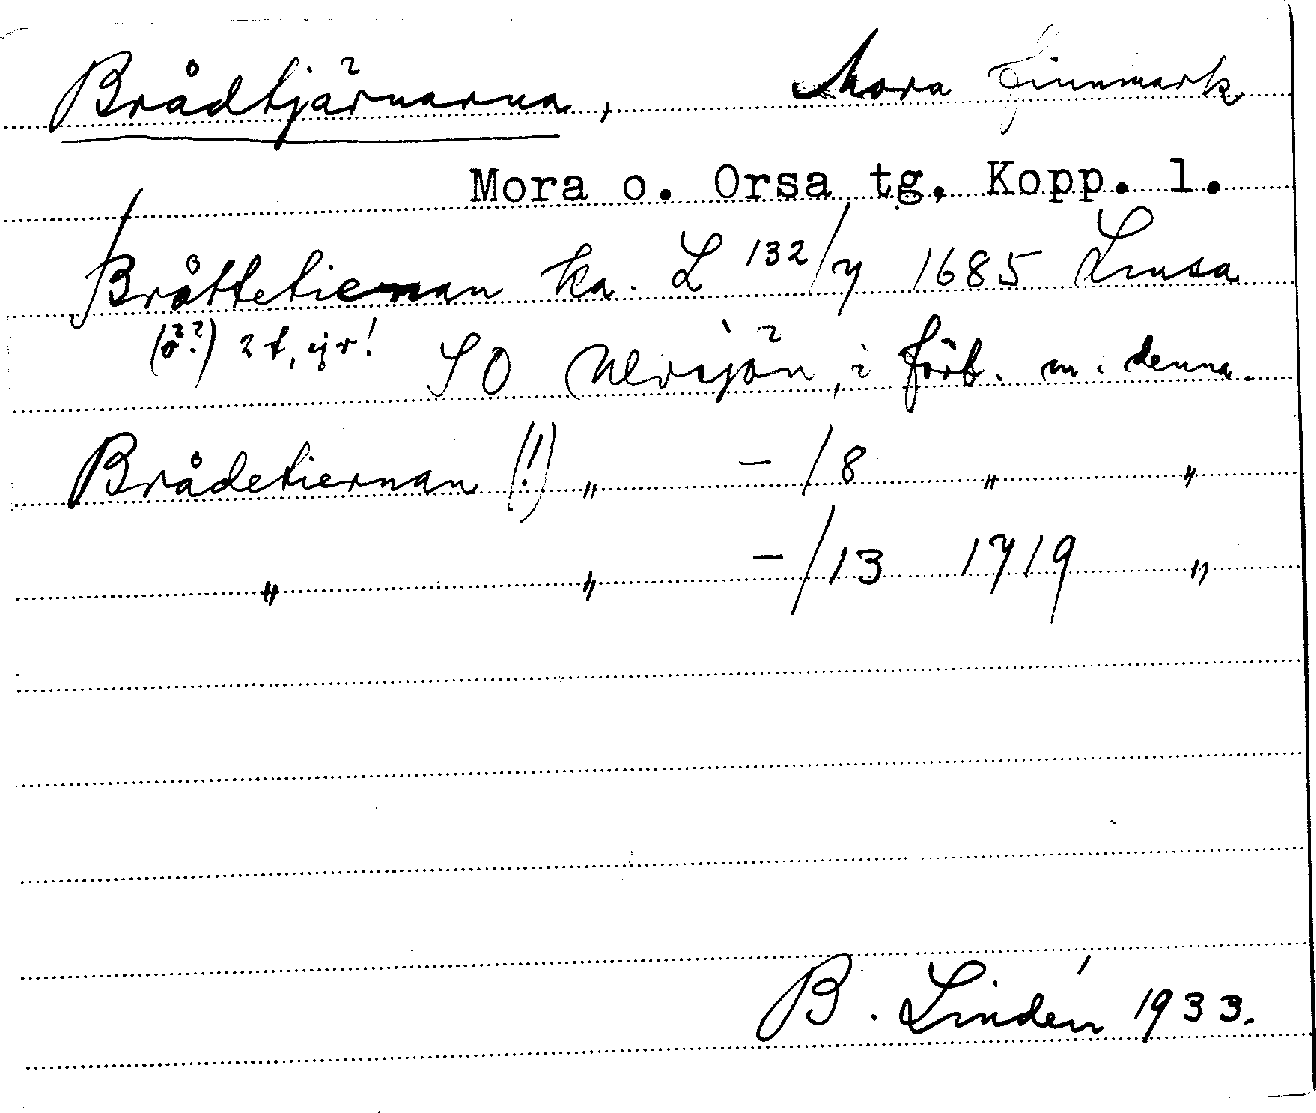 Brådtjärnarna, Mora Finnmark
Mora o. Orsa tg. Kopp. l.
Bråttetienan ka. L 132/7 1685 Lmsa
(ö??) 2 t, ej r!
SO Ulvsjön, i förb. m. denna.
Brådetiernan (!) " - /8 " "
" " - /13 1719 "
B. Lindén 1933.